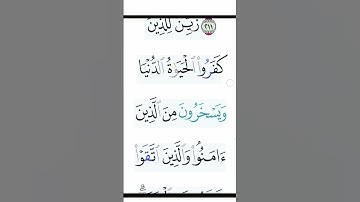 ٢١١ زُيِّنَ لِلَّذِينَ
كَفَرُوا۟ ٱلْحَيَوٰةُ ٱلدُّنْيَا
وَيَسْخَرُونَ مِنَ ٱلَّذِينَ
ءَامَنُوا۟ وَٱلَّذِينَ ٱتَّقَوْا۟